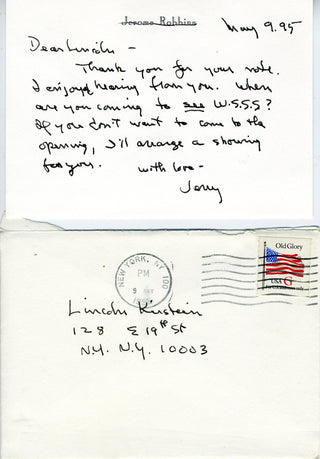 Jerome Robbins
May 9.95
Dear Lincoln -
Thank you for your note.
I enjoyed hearing from you. When
are you coming to see W.S.S.S?
If you don't want to come to the
opening, I'll arrange a showing
for you. with love -
Jerry
NEW YORK, NY 100
PM
9
Old Glory
USA G
For U.S. addresses only
Lincoln Kirstein
128 E 19th St
N.Y. N.Y. 10003